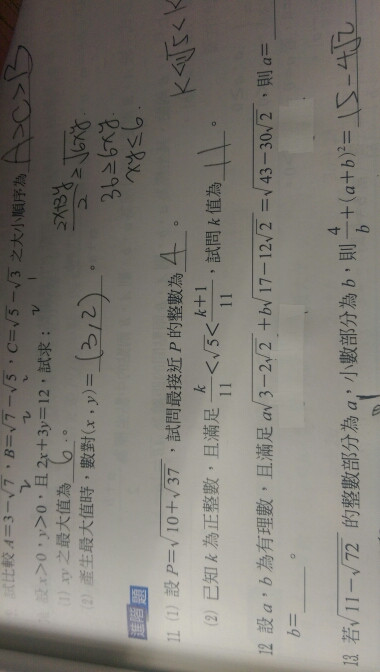 試比較 A=3−√7，B=√7−√5，C=√5−√3 之大小順序為 A>C>B
設 x>0，y>0，且 2x+3y=12，試求：
(1) xy 之最大值為 6 。
(2) 產生最大值時，數對(x，y)= (3,2) 。
(2x+3y)/2 ≥ √(6xy)
36≥6xy
xy≤6.
進階題
11 (1) 設 P=√(10+√37)，試問最接近 P 的整數為 4 。
(2) 已知 k 為正整數，且滿足 k/11<√5<(k+1)/11，試問 k 值為 11 。
12 設 a，b 為有理數，且滿足 a√(3−2√2)+b√(17−12√2)=√(43−30√2)，則 a=
b= 。
13 若√(11−√72) 的整數部分為 a，小數部分為 b，則 4/b+(a+b)²= 15−4√2